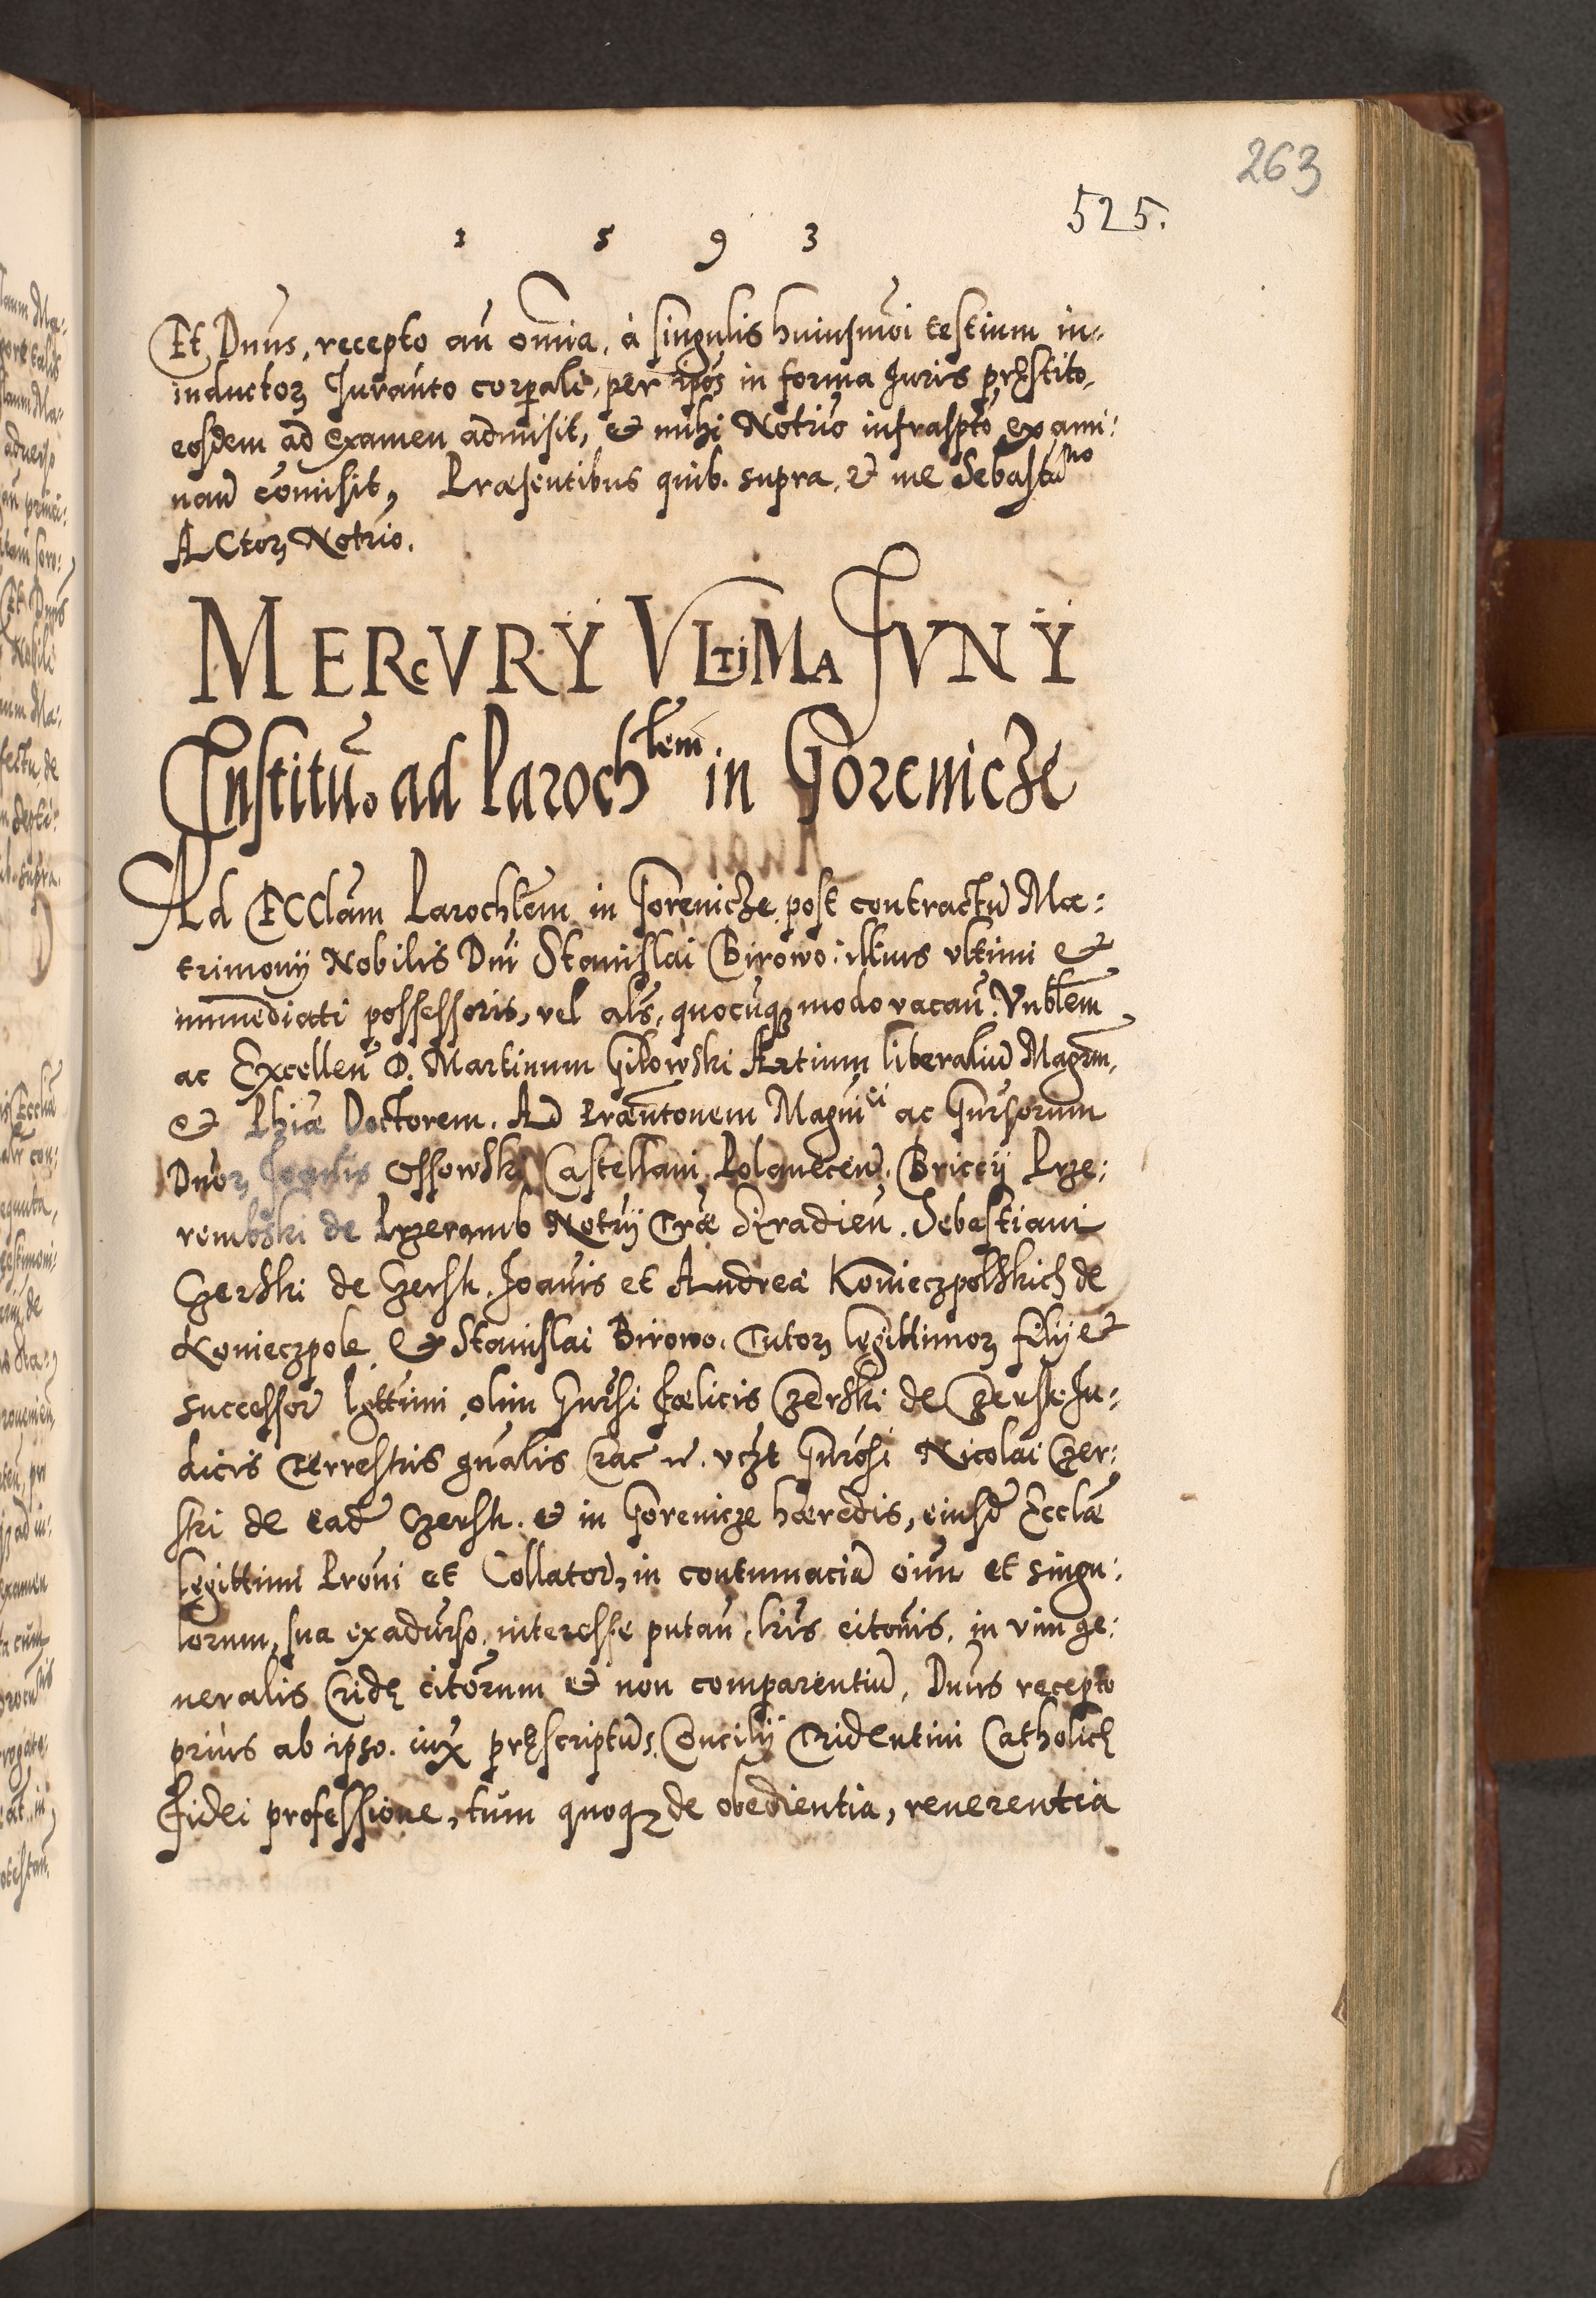 263
525.
1 5 9 3
Et Dnus, recepto añ omnia, à singulis huiusmõi testium in=
inductoꝝ Iurãnto corpali, per ip̃os in forma Iuris pręstito,
eosdem ad examen admisit, & mihi Notrio infrasp̃to exami:
nand̃ cõmisit, Præsentibus quib. supra, & me Sebastia no
Actoꝝ Notrio.
MERcVRŸ VLTiMA IVNŸ
Institũo ad Parochlem in Gorenicze
Ad Ecclãm Parochlẽm in Gorenicze post contractũ Ma=
trimonÿ Nobilis Dni Stanislai Birowo: illius vltimi &
immediati possessoris, vel al̃s, quocũqꝫ modo vacañ. Vnblẽm
ac Excelleñ D. Martinum Gilowski Artium liberaliũ Magr̃m,
& Phiæ Doctorem. Ad Præñtonem Magni ci ac Gnrsorum
Dnoꝝ Ossowski Castellani Polanecen̄. Briccÿ Prze:
rembski de Przeramb Notrÿ Træ Siradieñ. Sebastiani
Czerski de Czersk. Joañis et Andreæ Konieczpolskich de
Konieczpole & Stanislai Birowo. Tutoꝝ legittimoꝝ filÿ &
successor̃ lgttimi olim Gnrsi Fælicis Czerski de Czersk Iu=
dicis Terrestris gñalis Crac n. vcz̃t Gnrosi Nicolai Czer:
ski de ead̃ Czersk. & in Gorenicze hæredis, eiusd̃ Ecclæ
legittimi Prõni et Collator̃, in contumaciã oiũm et singu:
lorum, sua exadũrso, interesse putañ, lris citõnis, in vim ge:
neralis Cridę citõrum & non comparentiũ, Dnus recepto
priùs ab ipso. iux̃ pręscriptum Concilÿ Tridentini Catholicę
fidei professione, tum quoqꝫ de obedientia, reuerentia